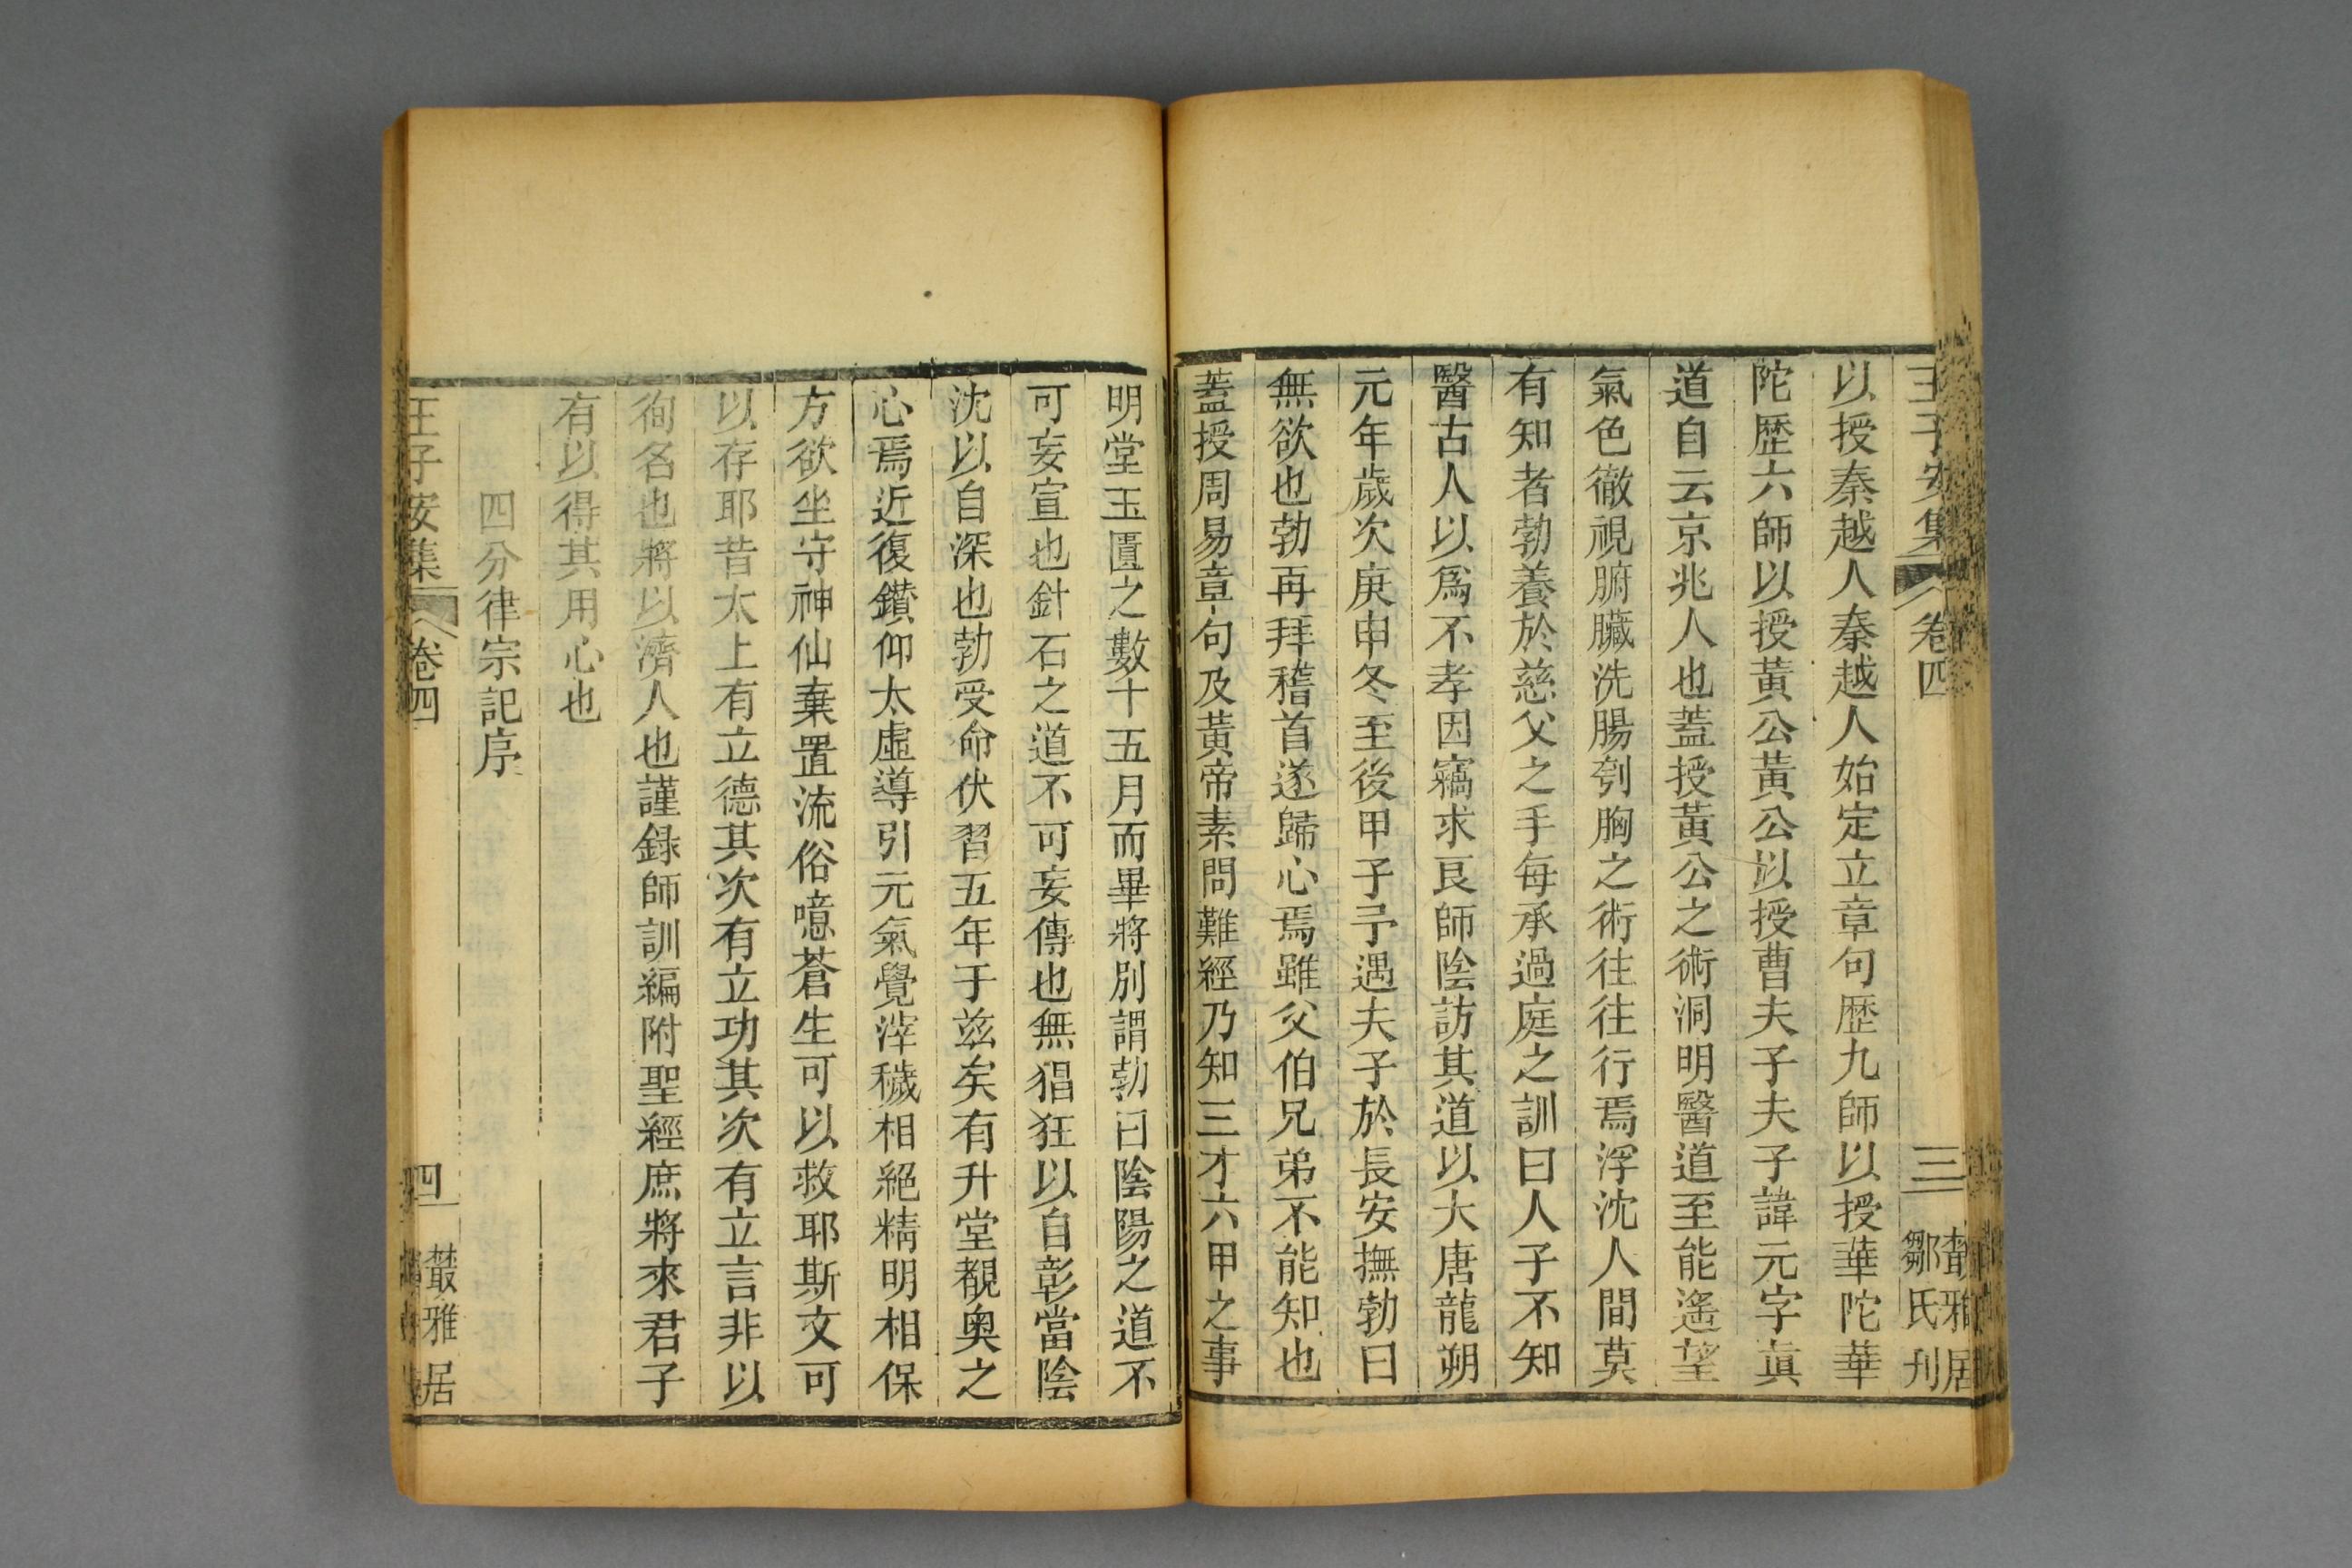 王子安集 卷四 三 叢雅居 鄒氏刋
以授秦越人秦越人始定立章句歷九師以授華陀華
陀歷六師以授黃公黃公以授曹夫子夫子諱元字眞
道自云京兆人也蓋授黃公之術洞明醫道至能遙望
氣色徹視腑臟洗腸刳胸之術往往行焉浮沈人間莫
有知者勃養於慈父之手每承過庭之訓曰人子不知
醫古人以爲不孝因竊求良師陰訪其道以大唐龍朔
元年歲次庚申冬至後甲子予遇夫子於長安撫勃曰
無欲也勃再拜稽首遂歸心焉雖父伯兄弟不能知也
蓋授周易章句及黃帝素問難經乃知三才六甲之事
明堂玉匱之數十五月而畢將別謂勃曰陰陽之道不
可妄宣也針石之道不可妄傳也無猖狂以自彰當陰
沈以自深也勃受命伏習五年于玆矣有升堂覩奥之
心焉近復鑽仰太虛導引元氣覺滓穢相絕精明相保
方欲坐守神仙棄置流俗噫蒼生可以救耶斯文可
以存耶昔太上有立德其次有立功其次有立言非以
徇名也將以濟人也謹錄師訓編附聖經庶將來君子
有以得其用心也
四分律宗記序
王子安集 卷四 四 叢雅居